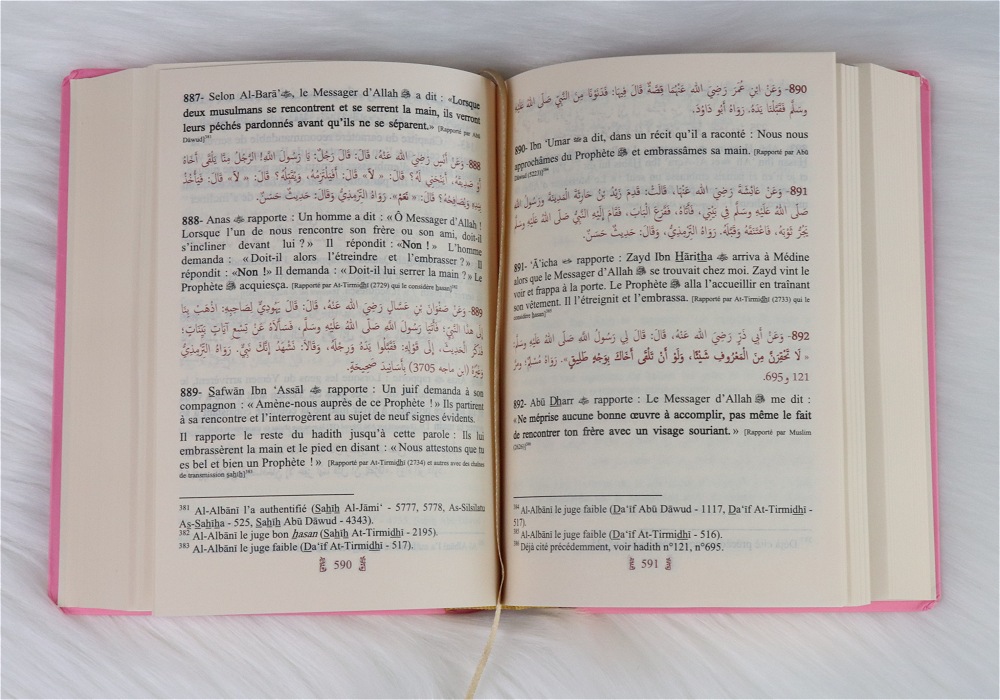 887- Selon Al-Barā’ ﷺ, le Messager d’Allah ﷺ a dit : «Lorsque
deux musulmans se rencontrent et se serrent la main, ils verront
leurs péchés pardonnés avant qu’ils ne se séparent.» [Rapporté par Abū
Dāwud]³⁸¹
888- وَعَنْ أَنَسٍ رَضِيَ اللَّه عَنْهُ، قَالَ: قَالَ رَجُلٌ: يَا رَسُولَ اللَّهِ! الرَّجُلُ مِنَّا يَلْقَى أَخَاهُ
أَوْ صَدِيقَهُ، أَيَنْحَنِي لَهُ؟ قَالَ: « لاَ» قَالَ: أَفَيَلْتَزِمُهُ، وَيُقَبِّلُهُ؟ قَالَ: « لاَ» قَالَ: فَيَأْخُذُ
بِيَدِهِ وَيُصَافِحُهُ؟ قَالَ: « نَعَمْ». رَوَاهُ التِّرْمِذِيُّ وَقَالَ: حَدِيثٌ حَسَنٌ.
888- Anas rapporte : Un homme a dit : « Ô Messager d’Allah !
Lorsque l’un de nous rencontre son frère ou son ami, doit-il
s’incliner devant lui ? » Il répondit : «Non ! » L’homme
demanda : « Doit-il alors l’étreindre et l’embrasser ? » Il
répondit : «Non !» Il demanda : « Doit-il lui serrer la main ? » Le
Prophète ﷺ acquiesça. [Rapporté par At-Tirmidhī (2729) qui le considère hasan]³⁸²
889- وَعَنْ صَفْوَانَ بْنِ عَسَّالٍ رَضِيَ اللَّه عَنْهُ، قَالَ: قَالَ يَهُودِيٌّ لِصَاحِبِهِ: اذْهَبْ بِنَا
إِلَى هَذَا النَّبِيِّ؛ فَأَتَيَا رَسُولَ اللَّهِ صَلَّى اللَّه عَلَيْهِ وَسَلَّم، فَسَأَلَاهُ عَنْ تِسْعِ آيَاتٍ بَيِّنَاتٍ؛
فَذَكَرَ الْحَدِيثَ، إِلَى قَوْلِهِ: فَقَبَّلُوا يَدَهُ وَرِجْلَهُ، وَقَالَا: نَشْهَدُ إِنَّكَ نَبِيٌّ. رَوَاهُ التِّرْمِذِيُّ
وَغَيْرُهُ (ابن ماجه 3705) بِأَسَانِيدَ صَحِيحَةٍ.
889- Safwān Ibn ‘Assāl ﷺ rapporte : Un juif demanda à son
compagnon : « Amène-nous auprès de ce Prophète ! » Ils partirent
à sa rencontre et l’interrogèrent au sujet de neuf signes évidents.
Il rapporte le reste du hadith jusqu’à cette parole : Ils lui
embrassèrent la main et le pied en disant : « Nous attestons que tu
es bel et bien un Prophète ! » [Rapporté par At-Tirmidhī (2734) et autres avec des chaînes
de transmission sahīh]³⁸³
³⁸¹ Al-Albānī l’a authentifié (Sahīh Al-Jāmi‘ - 5777, 5778, As-Silsilatu
As-Sahīha - 525, Sahīh Abū Dāwud - 4343).
³⁸² Al-Albānī le juge bon hasan (Sahīh At-Tirmidhī - 2195).
³⁸³ Al-Albānī le juge faible (Da‘īf At-Tirmidhī - 517).
590
890- وَعَنِ ابْنِ عُمَرَ رَضِيَ اللَّه عَنْهُمَا قِصَّةٌ قَالَ فِيهَا: فَدَنَوْنَا مِنَ النَّبِيِّ صَلَّى اللَّه عَلَيْهِ
وَسَلَّم فَقَبَّلْنَا يَدَهُ. رَوَاهُ أَبُو دَاوُدَ.
890- Ibn ‘Umar ﷺ a dit, dans un récit qu’il a raconté : Nous nous
approchâmes du Prophète ﷺ et embrassâmes sa main. [Rapporté par Abū
Dāwud (5223)]³⁸⁴
891- وَعَنْ عَائِشَةَ رَضِيَ اللَّه عَنْهَا، قَالَتْ: قَدِمَ زَيْدُ بْنُ حَارِثَةَ الْمَدِينَةَ وَرَسُولُ اللَّهِ
صَلَّى اللَّهُ عَلَيْهِ وَسَلَّم فِي بَيْتِي، فَأَتَاهُ، فَقَرَعَ الْبَابَ، فَقَامَ إِلَيْهِ النَّبِيُّ صَلَّى اللَّه عَلَيْهِ وَسَلَّم
يَجُرُّ ثَوْبَهُ، فَاعْتَنَقَهُ وَقَبَّلَهُ. رَوَاهُ التِّرْمِذِيُّ، وَقَالَ: حَدِيثٌ حَسَنٌ.
891- ‘Ā’icha rapporte : Zayd Ibn Hāritha ﷺ arriva à Médine
alors que le Messager d’Allah ﷺ se trouvait chez moi. Zayd vint le
voir et frappa à la porte. Le Prophète ﷺ alla l’accueillir en traînant
son vêtement. Il l’étreignit et l’embrassa. [Rapporté par At-Tirmidhī (2733) qui le
considère hasan]³⁸⁵
892- وَعَنْ أَبِي ذَرٍّ رَضِيَ اللَّه عَنْهُ، قَالَ: قَالَ لِي رَسُولُ اللَّه صَلَّى اللَّهُ عَلَيْهِ وَسَلَّم:
« لَا تَحْقِرَنَّ مِنَ الْمَعْرُوفِ شَيْئًا، وَلَوْ أَنْ تَلْقَى أَخَاكَ بِوَجْهٍ طَلِيقٍ». رَوَاهُ مُسْلِمٌ؛
121 و 695.
892- Abū Dharr ﷺ rapporte : Le Messager d’Allah ﷺ me dit :
«Ne méprise aucune bonne œuvre à accomplir, pas même le fait
de rencontrer ton frère avec un visage souriant. » [Rapporté par Muslim
(2626)]³⁸⁶
³⁸⁴ Al-Albānī le juge faible (Da‘īf Abū Dāwud - 1117, Da‘īf At-Tirmidhī -
517).
³⁸⁵ Al-Albānī le juge faible (Da‘īf At-Tirmidhī - 516).
³⁸⁶ Déjà cité précédemment, voir hadith n°121, n°695.
591